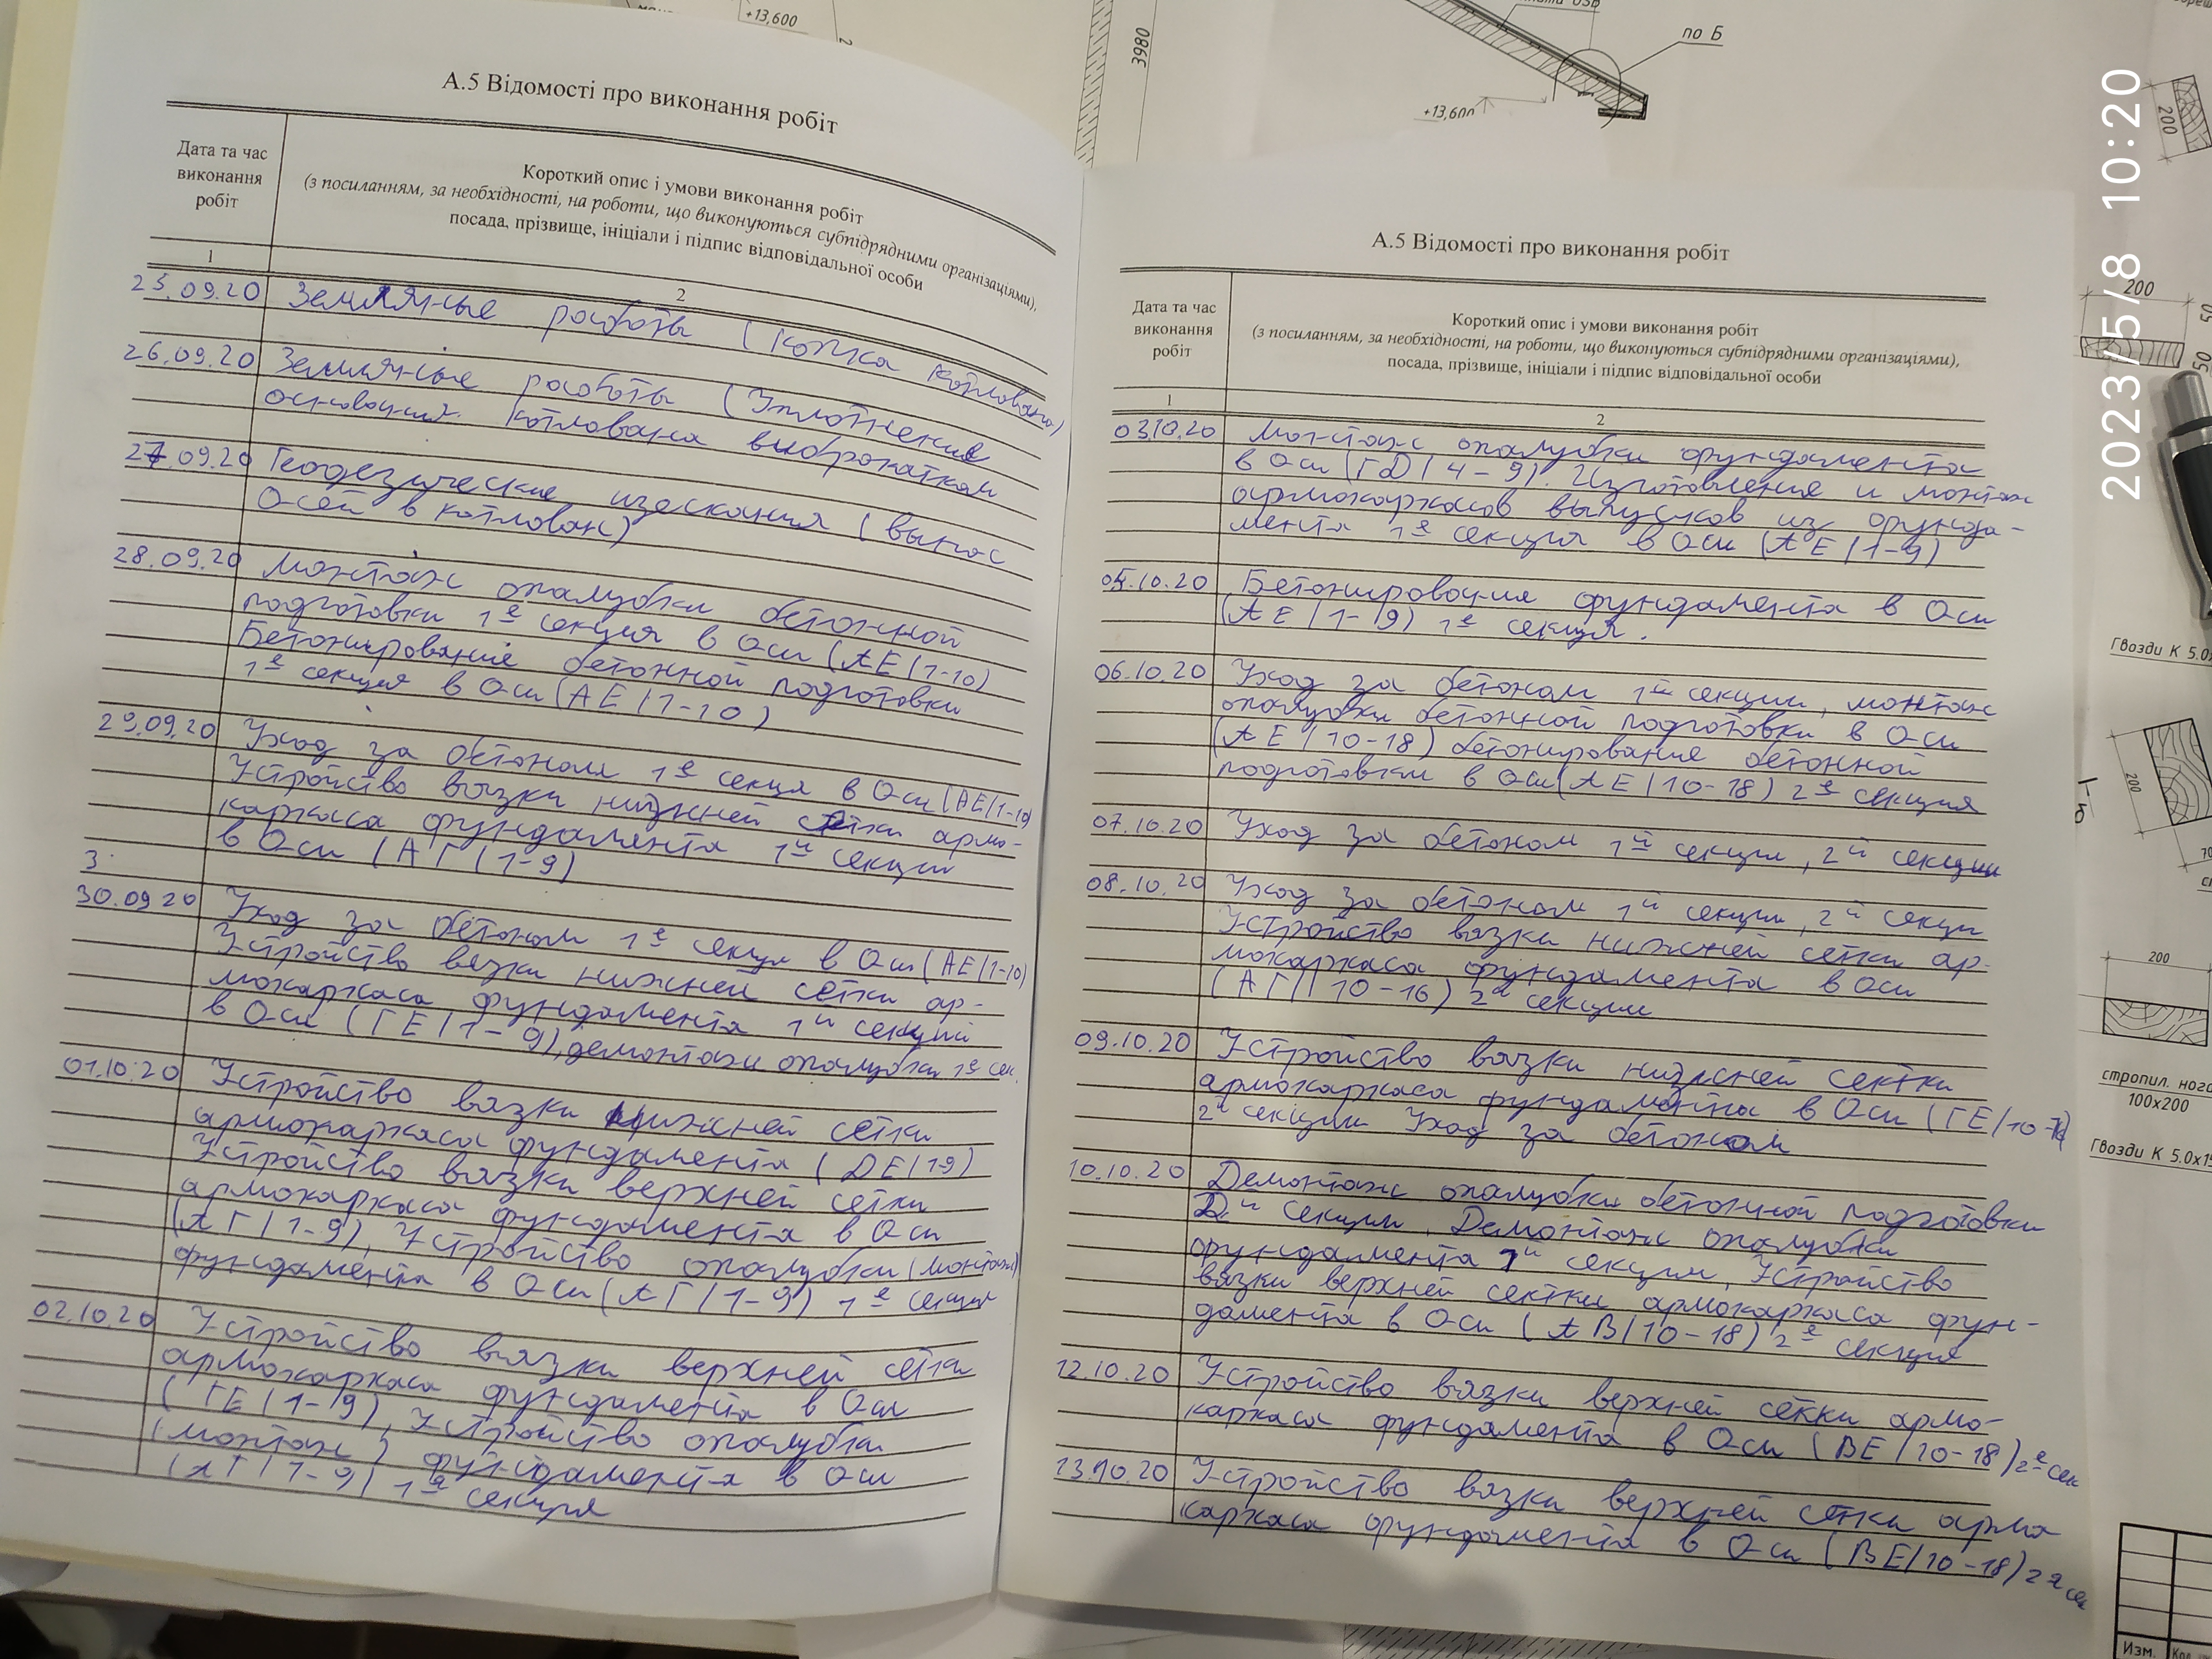 +13,600
3980
плати OSB
по Б
+13,600
200
2023/5/8 10:20
А.5 Відомості про виконання робіт
Дата та час
виконання
робіт
Короткий опис і умови виконання робіт
(з посиланням, за необхідності, на роботи, що виконуються субпідрядними організаціями),
посада, прізвище, ініціали і підпис відповідальної особи
1
2
25.09.20 Земляные работы (копка котлована)
26.09.20 Земляные работы (Уплотнение
основания котлована виброкатком
27.09.20 Геодезические изыскания (вынос
Осей в котлован)
28.09.20 Монтаж опалубки бетонной
подготовки 1я секция в Оси (АЕ/1-10)
Бетонирование бетонной подготовки
1я секция в Оси (АЕ/1-10)
29.09.20 Уход за бетоном 1я секця в Оси (АЕ/1-10)
Устройство вязки нижней сетки армо-
каркаса фундамента 1й секции
в Оси (АГ/1-9)
3
30.09.20 Уход за бетоном 1я секця в Оси (АЕ/1-10)
Устройство вязки нижней сетки ар-
мокаркаса фундамента 1й секций
в Оси (ГЕ/1-9), демонтаж опалубки 1я сек.
01.10.20 Устройство вязки нижней сетки
армокаркаса фундамента (DЕ/19)
Устройство вязки верхней сетки
армокаркаса фундамента в Оси
(АГ/1-9), Устройство опалубки (монтаж)
фундамента в Оси (АГ/1-9) 1я секция
02.10.20 Устройство вязки верхней сетки
армокаркаса фундамента в Оси
(ГЕ/1-9), Устройство опалубки
(монтаж) фундамента в Оси
(АГ/1-9) 1я секция
А.5 Відомості про виконання робіт
Дата та час
виконання
робіт
Короткий опис і умови виконання робіт
(з посиланням, за необхідності, на роботи, що виконуються субпідрядними організаціями),
посада, прізвище, ініціали і підпис відповідальної особи
1
2
03.10.20 Монтаж опалубки фундамента
в Оси (ГD/4-9). Изготовление и монтаж
армокаркасов выпусков из фунда-
мента 1я секция в Оси (АЕ/1-9)
05.10.20 Бетонирования фундамента в Оси
(АЕ/1-9) 1я секция.
06.10.20 Уход за бетоном 1й секции, монтаж
опалубки бетонной подготовки в Оси
(АЕ/10-18) бетонирование бетонной
подготовки в Оси (АЕ/10-18) 2я секция
07.10.20 Уход за бетоном 1й секции, 2й секции
08.10.20 Уход за бетоном 1й секции, 2й секци
Устройство вязки нижней сетки ар-
мокаркаса фундамента в Оси
(АГ/10-16) 2й секции
09.10.20 Устройство вязки нижней сектки
армокаркаса фундамента в Оси (ГЕ/10-
2й секции Уход за бетоном
10.10.20 Демонтаж опалубки бетонной подготовки
2й секции, Демонтаж опалубки
фундамента 1й секции, Устройство
вязки верхней сектки армокаркаса фун-
дамента в Оси (АВ/10-18) 2я секция
12.10.20 Устройство вязки верхней секки армо-
каркаса фундамента в Оси (ВЕ/10-18) 2я сек
13.10.20 Устройство вязки верхней сетки арма
каркаса фундамента в Оси (ВЕ/10-18) 2я сек
200
50
50
Гвозди К 5.0х
200
70
200
стропил. нога
100х200
Гвозди К 5.0х15
Изм.